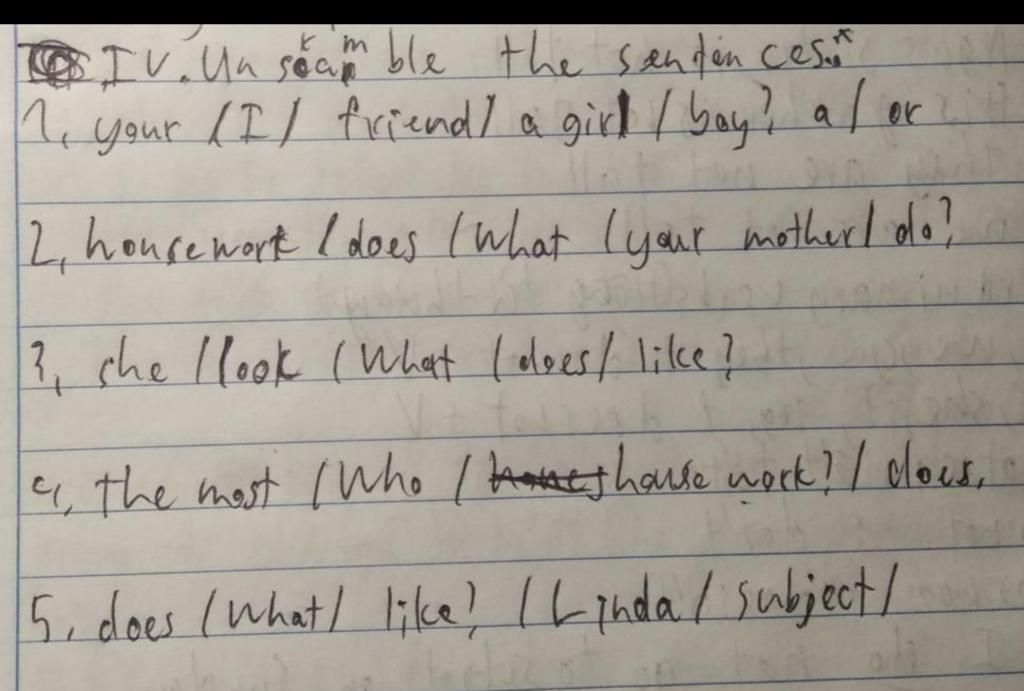 IV. Unscramble the sentences.
1, your / I / friend / a girl / boy? a / or
2, housework / does / What / your mother / do?
3, she / look / What / does / like?
4, the most / Who / house work? / does,
5, does / What / like? / Linda / subject /